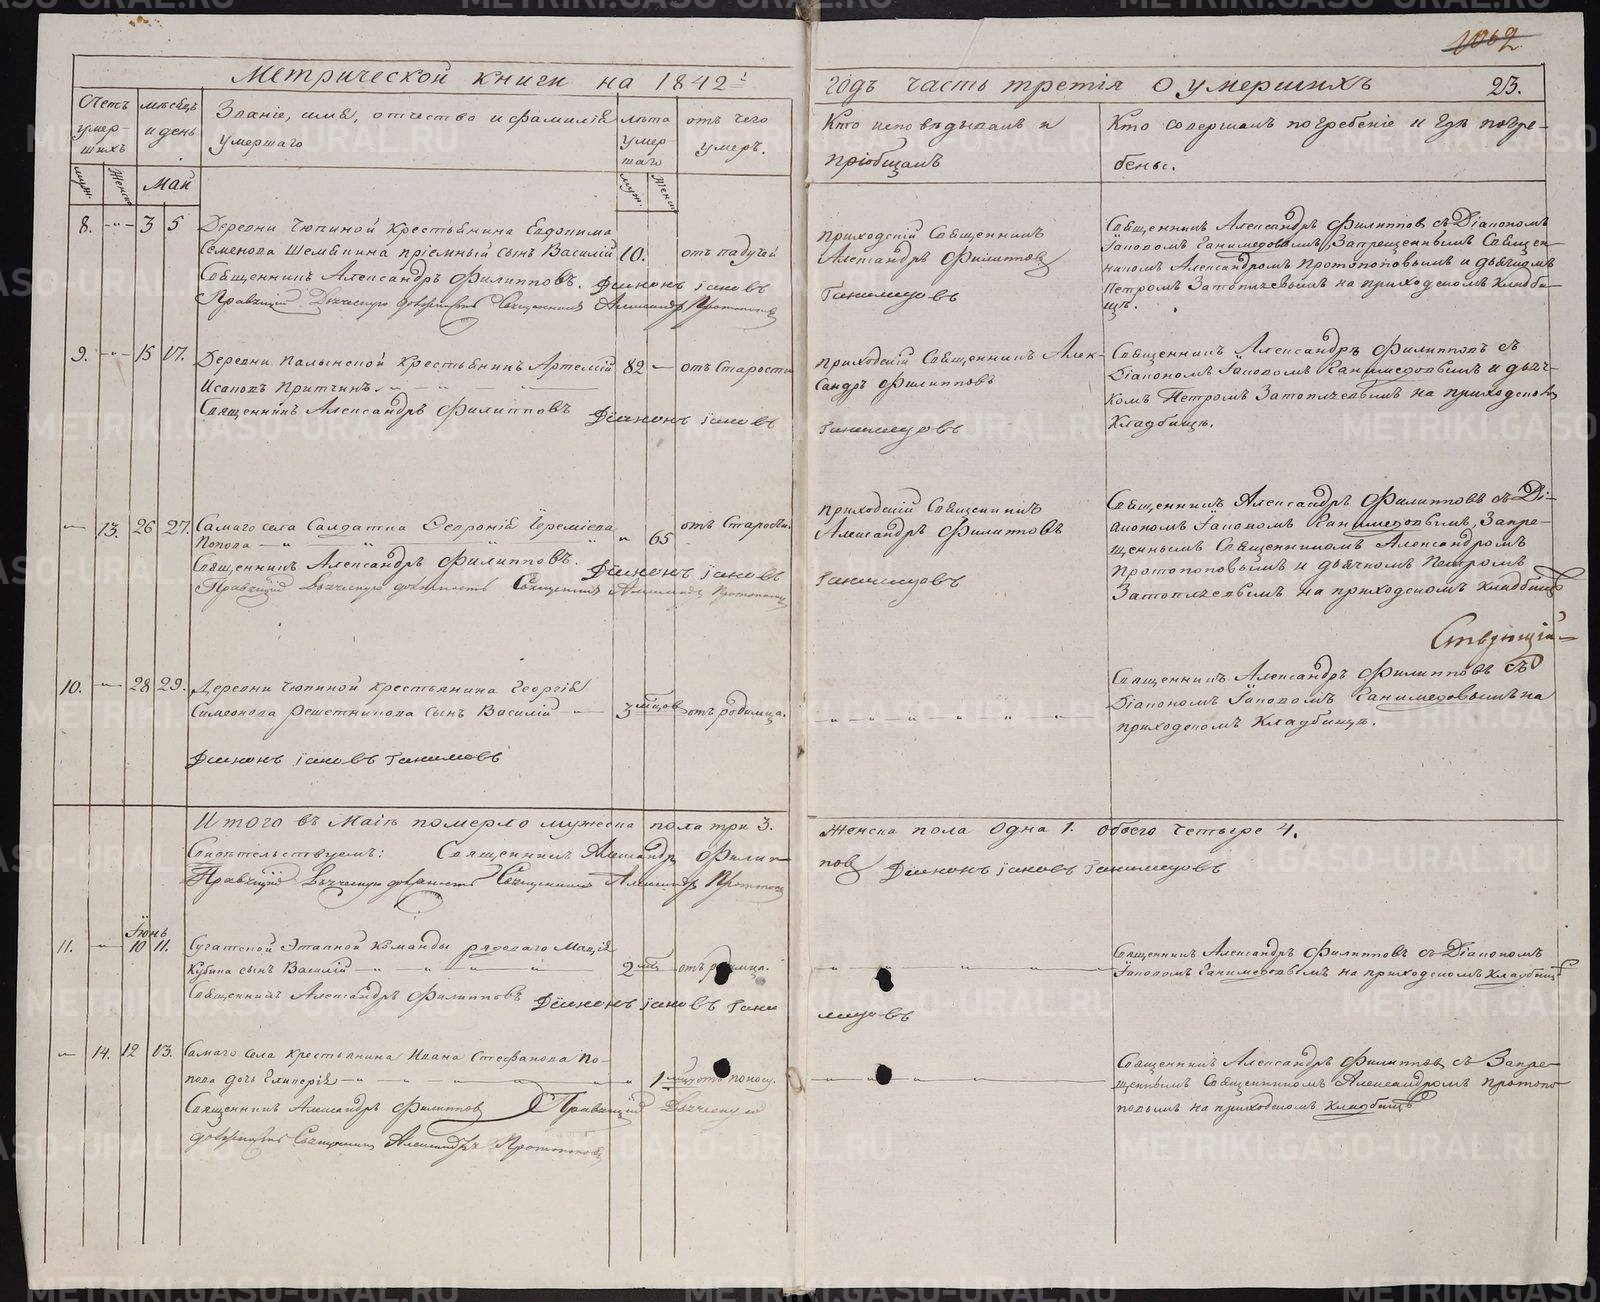 1062
Метрической книги на 1842й
годъ часть третія о умершихъ 23.
Счетъ умер-шихъ
муж.
Женс
мѣсяцъ и день
Май
Званіе, имя, отчество и фамилія
умершаго
лѣта
умер
шаго
муж.
Женс
отъ чего
умеръ.
Кто исповѣдывалъ и
пріобщалъ
Кто совершалъ погребеніе и гдѣ погре-
бены.
8. -"- 3 5
Деревни Чюпиной Крестьянина Евдокима
Семенова Шемякина пріемный сынъ Василій 10. отъ падучей
Священникъ Александръ Филипповъ. Діаконъ Іаковъ
Правящій Дьяческую должность Священникъ Александръ Протопоповъ
приходскій Священникъ
Александръ Филипповъ
Ганимедовъ
Священникъ Александръ Филиповъ съ Діакономъ
Іаковомъ Ганимедовымъ, Запрещеннымъ Священ-
никомъ Александромъ Протопоповымъ и дьячкомъ
Петромъ Затопляевымъ на приходскомъ кладби-
щѣ.
9. -"- 15 17.
Деревни Крестьянинъ Артемій 82 — отъ Старости
Исаковъ Притчинъ
Священникъ Александръ Филипповъ Діаконъ Іаковъ
приходскій Священникъ Алек-
сандръ Филипповъ
Ганимедовъ
Священникъ Александръ Филипповъ съ
Діакономъ Іаковомъ Ганимедовымъ и дьяч-
комъ Петромъ Затопляевымъ на приходскомъ
Кладбищѣ.
— 13. 26 27.
Самаго села Салдатка Іереміева отъ Старости.
Попова " 65
Священникъ Александръ Филипповъ. Діаконъ Іаковъ
Правящій Дьяческую должность Священникъ Александръ Протопоповъ
приходскій Священникъ
Александръ Филипповъ
Ганимедовъ
Священникъ Александръ Филипповъ съ Ді-
акономъ Іаковомъ Ганимедовымъ, Запре-
щеннымъ Священникомъ Александромъ
Протопоповымъ и дьячкомъ Петромъ
Затопляевымъ на приходскомъ кладбищѣ
10. -"- 28 29.
Деревни Чюпиной крестьянина Георгія
Симеонова Решетникова сынъ Василій — 3 мѣсцовъ отъ родимца.
Діаконъ Іаковъ Ганимедовъ
Священникъ Александръ Филипповъ съ
Діакономъ Іаковомъ Ганимедовымъ на
приходскомъ Кладбищѣ.
Итого въ Маіѣ померло мужеска пола три 3.
Женска пола одна 1. обоего четыре 4.
Свидѣтельствуемъ: Священникъ Александръ Филип-
повъ Діаконъ Іаковъ Ганимедовъ
Правящій Дьяческую должность Священникъ Александръ Протопоповъ
Іюнь
11. — 10 11.
Сугатской Этапной Команды рядоваго
Кубина сынъ Василій 2 мѣс отъ родимца.
Священникъ Александръ Филипповъ Діаконъ Іаковъ Гани
медовъ
Священникъ Александръ Филипповъ съ Діакономъ
Іаковомъ Ганимедовымъ на приходскомъ Кладбищѣ
— 14. 12 13.
Самаго села крестьянина Ивана Стефанова По-
пова дочь Гликерія " 1 отъ поносу.
Священникъ Александръ Филипповъ Правящій Дьяческую
должность Священникъ Александръ Протопоповъ
Священникъ Александръ Филипповъ съ Запре-
щеннымъ Священникомъ Александромъ Протопо-
повымъ на приходскомъ Кладбищѣ